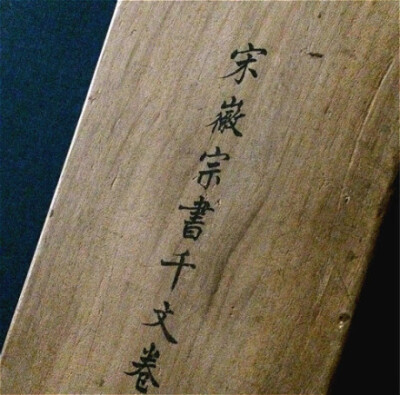 宋徽宗書千文卷